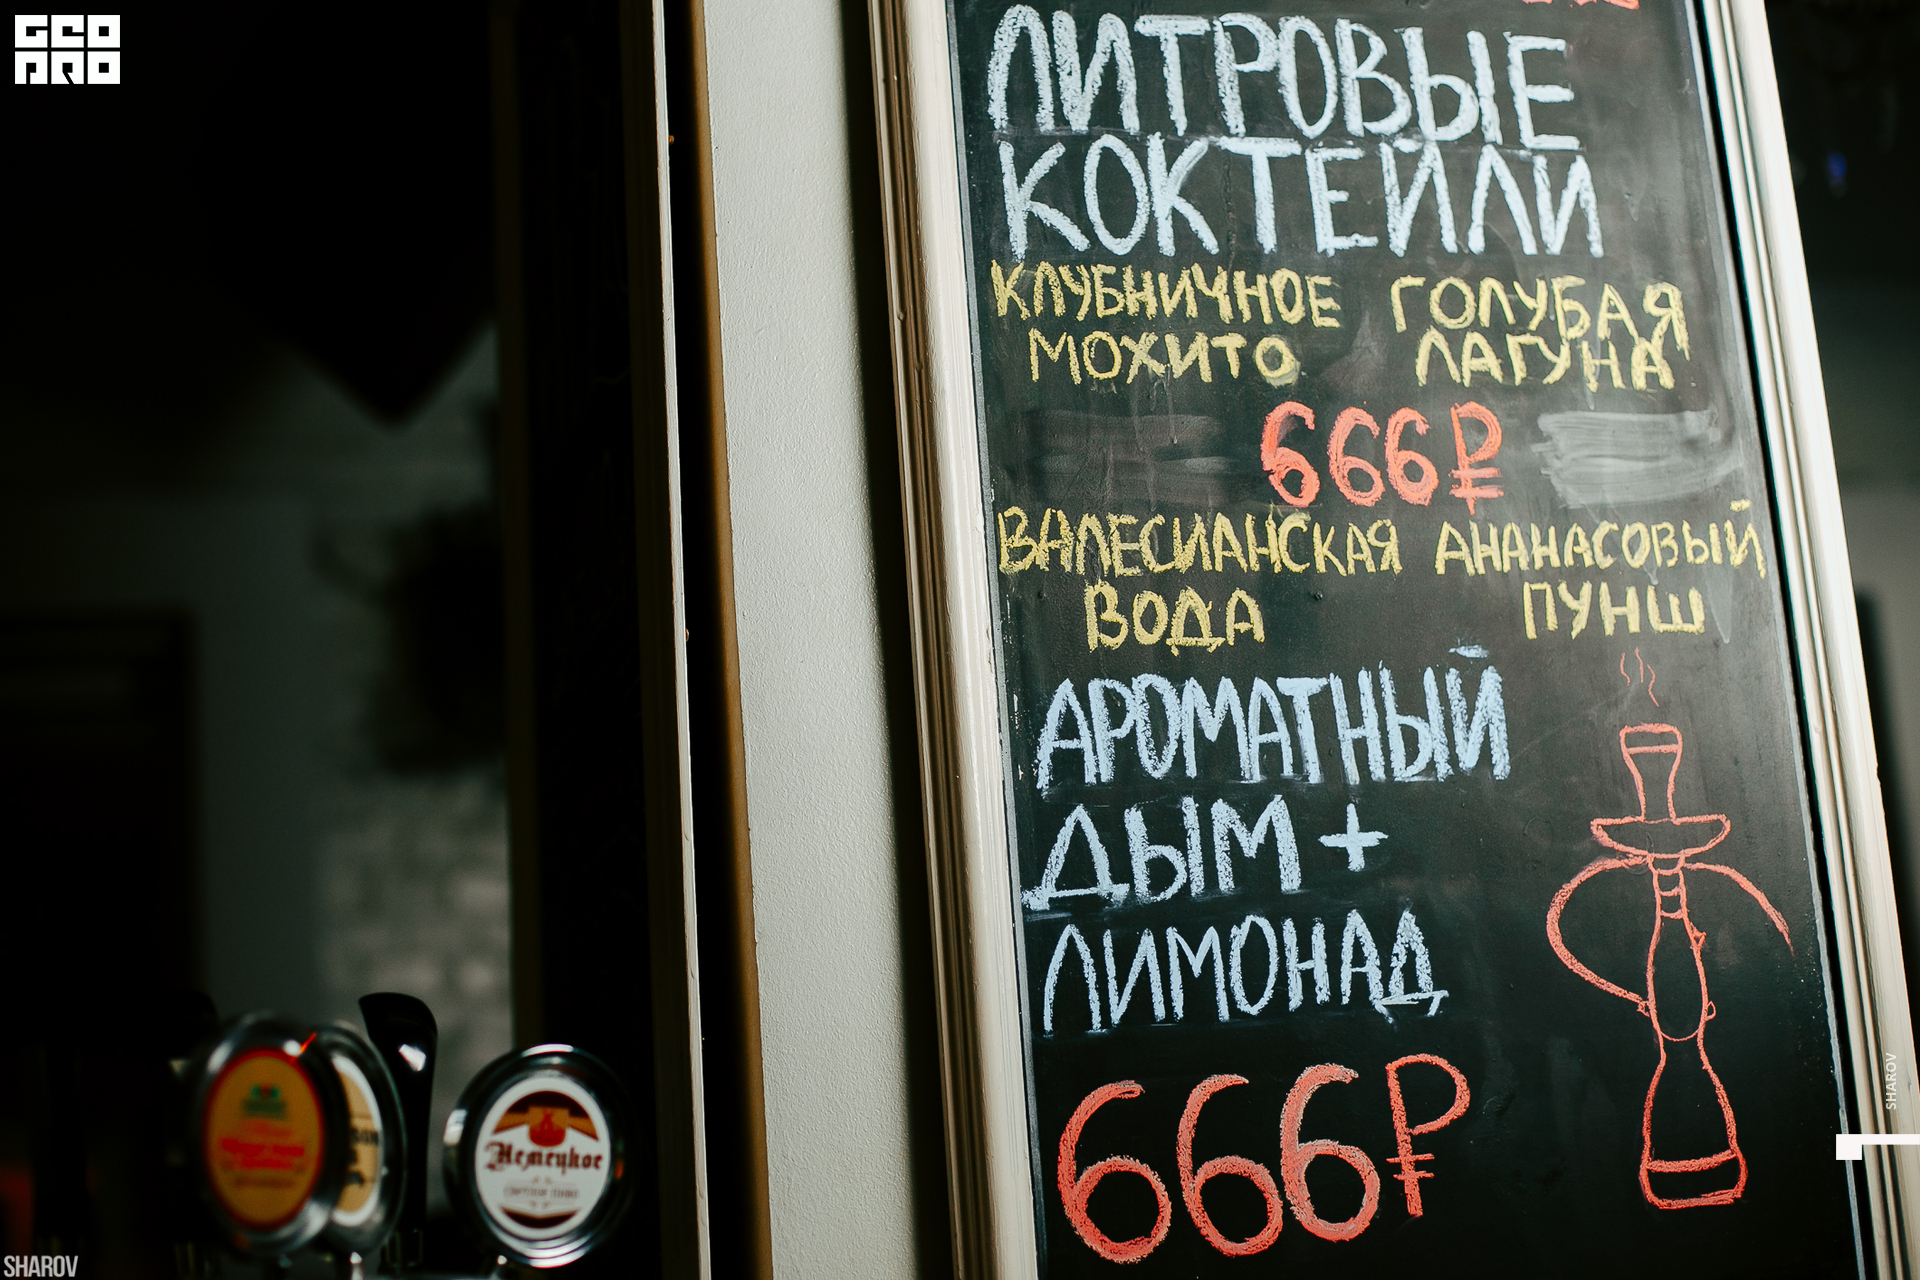 GEO
PRO
ЛИТРОВЫЕ
КОКТЕЙЛИ
КЛУБНИЧНОЕ ГОЛУБАЯ
МОХИТО ЛАГУНА
666₽
ВАЛЕСИАНСКАЯ АНАНАСОВЫЙ
ВОДА ПУНШ
АРОМАТНЫЙ
ДЫМ +
ЛИМОНАД
666₽
Немецкое
SHAROV
SHAROV